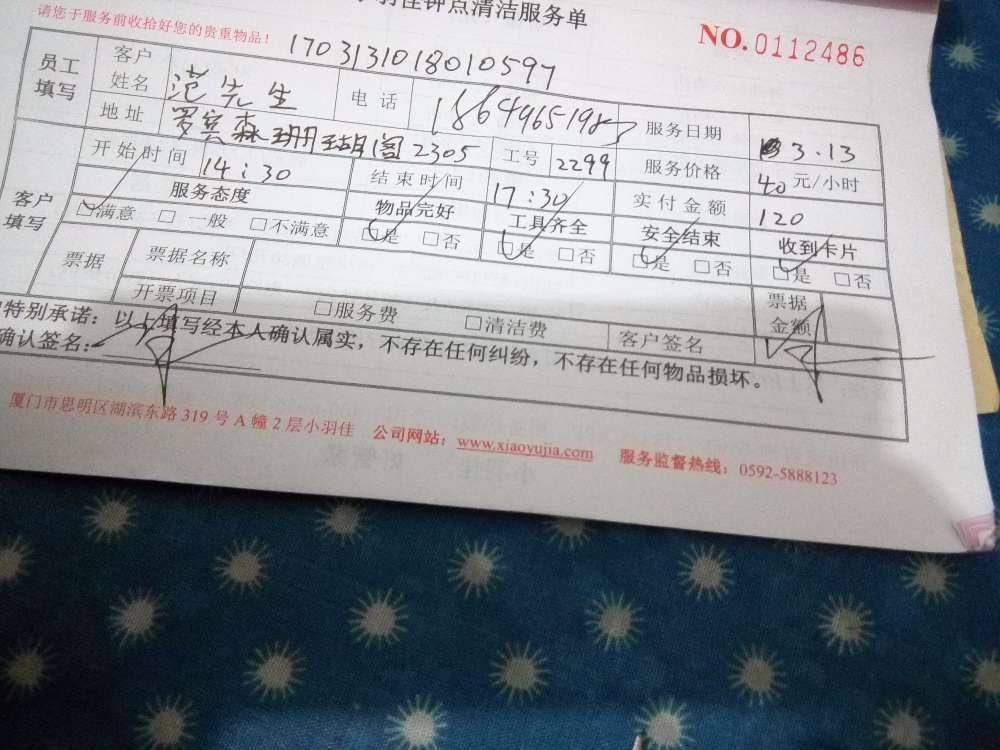 羽佳钟点清洁服务单
请您于服务前收拾好您的贵重物品！
NO.0112486
1703131018010597
员工填写 客户姓名 范先生 电话 18649651987 服务日期 3.13
地址 罗宾森珊瑚阁2305 工号 2299 服务价格 40元/小时
客户填写 开始时间 14:30 结束时间 17:30 实付金额 120
服务态度 物品完好 工具齐全 安全结束 收到卡片
☑满意 □一般 □不满意 ☑是 □否 ☑是 □否 ☑是 □否 ☑是 □否
票据 票据名称 票据金额
开票项目 □服务费 □清洁费 客户签名
特别承诺：以上填写经本人确认属实，不存在任何纠纷，不存在任何物品损坏。
确认签名：
厦门市思明区湖滨东路319号A幢2层小羽佳 公司网站：www.xiaoyujia.com 服务监督热线：0592-5888123